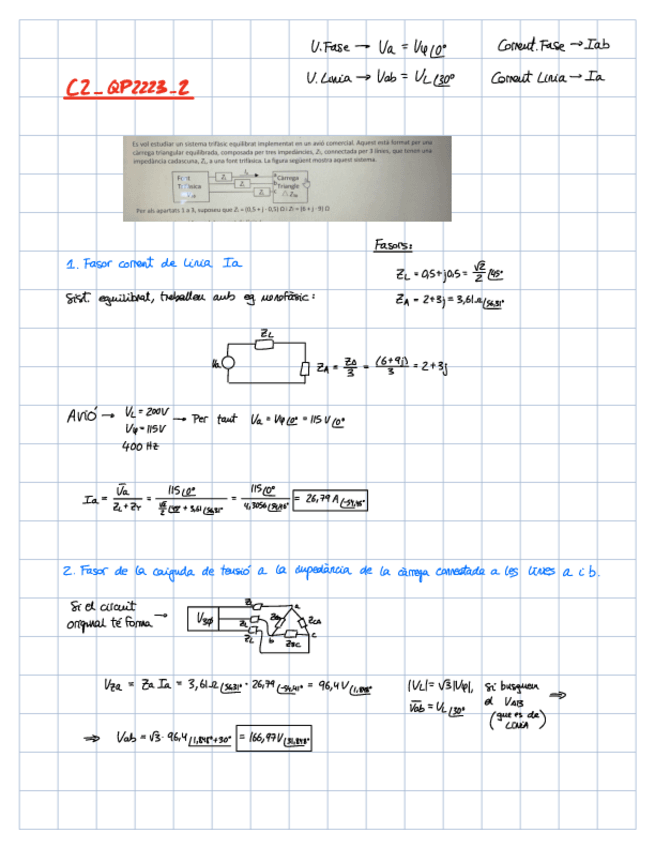 U.Fase → Va = Vφ∠0°
Corrent.Fase → Iab
C2_QP2223_2
U.Linia → Vab = UL∠30°
Corrent Linia → Ia
Es vol estudiar un sistema trifàsic equilibrat implementat en un avió comercial. Aquest està format per una
càrrega triangular equilibrada, composada per tres impedàncies, ZΔ, connectada per 3 línies, que tenen una
impedància cadascuna, ZL, a una font trifàsica. La figura següent mostra aquest sistema.
Font
Trifàsica
ZL
ZL
ZL
Càrrega
Triangle
Per als apartats 1 a 3, suposeu que ZL = (0,5 + j · 0,5) Ω i ZΔ = (6 + j · 9) Ω
Fasors:
1. Fasor corrent de linia Ia
ZL = 0,5+j0,5 = √2/2 ∠45°
Sist. equilibrat, treballem amb eq monofàsic:
ZA = 2+3j = 3,61Ω∠56,31°
ZL
Va
ZA = ZΔ/3 = (6+9j)/3 = 2+3j
Avió → VL = 200V
Vφ = 115V
400 Hz
→ Per tant Va = Vφ∠0° = 115V∠0°
Ia = Va/(ZL+ZY) = 115∠0°/(√2/2∠45° + 3,61∠56,31°) = 115∠0°/4,3056∠54,46° = 26,79 A∠-54,46°
2. Fasor de la caiguda de tensió a la impedància de la càrrega connectada a les línies a i b.
Si el circuit
original té forma →
V3φ
ZL
ZL
ZL
a
ZCA
b
c
ZBC
VZa = Za Ia = 3,61Ω∠56,31° · 26,79∠-54,46° = 96,4V∠1,848°
|VL| = √3|Vφ|,
Vab = UL∠30°
Si busquem
el VAB
(que es de
LINIA)
⇒
⇒ Vab = √3 · 96,4∠1,848°+30° = 166,97V∠31,848°